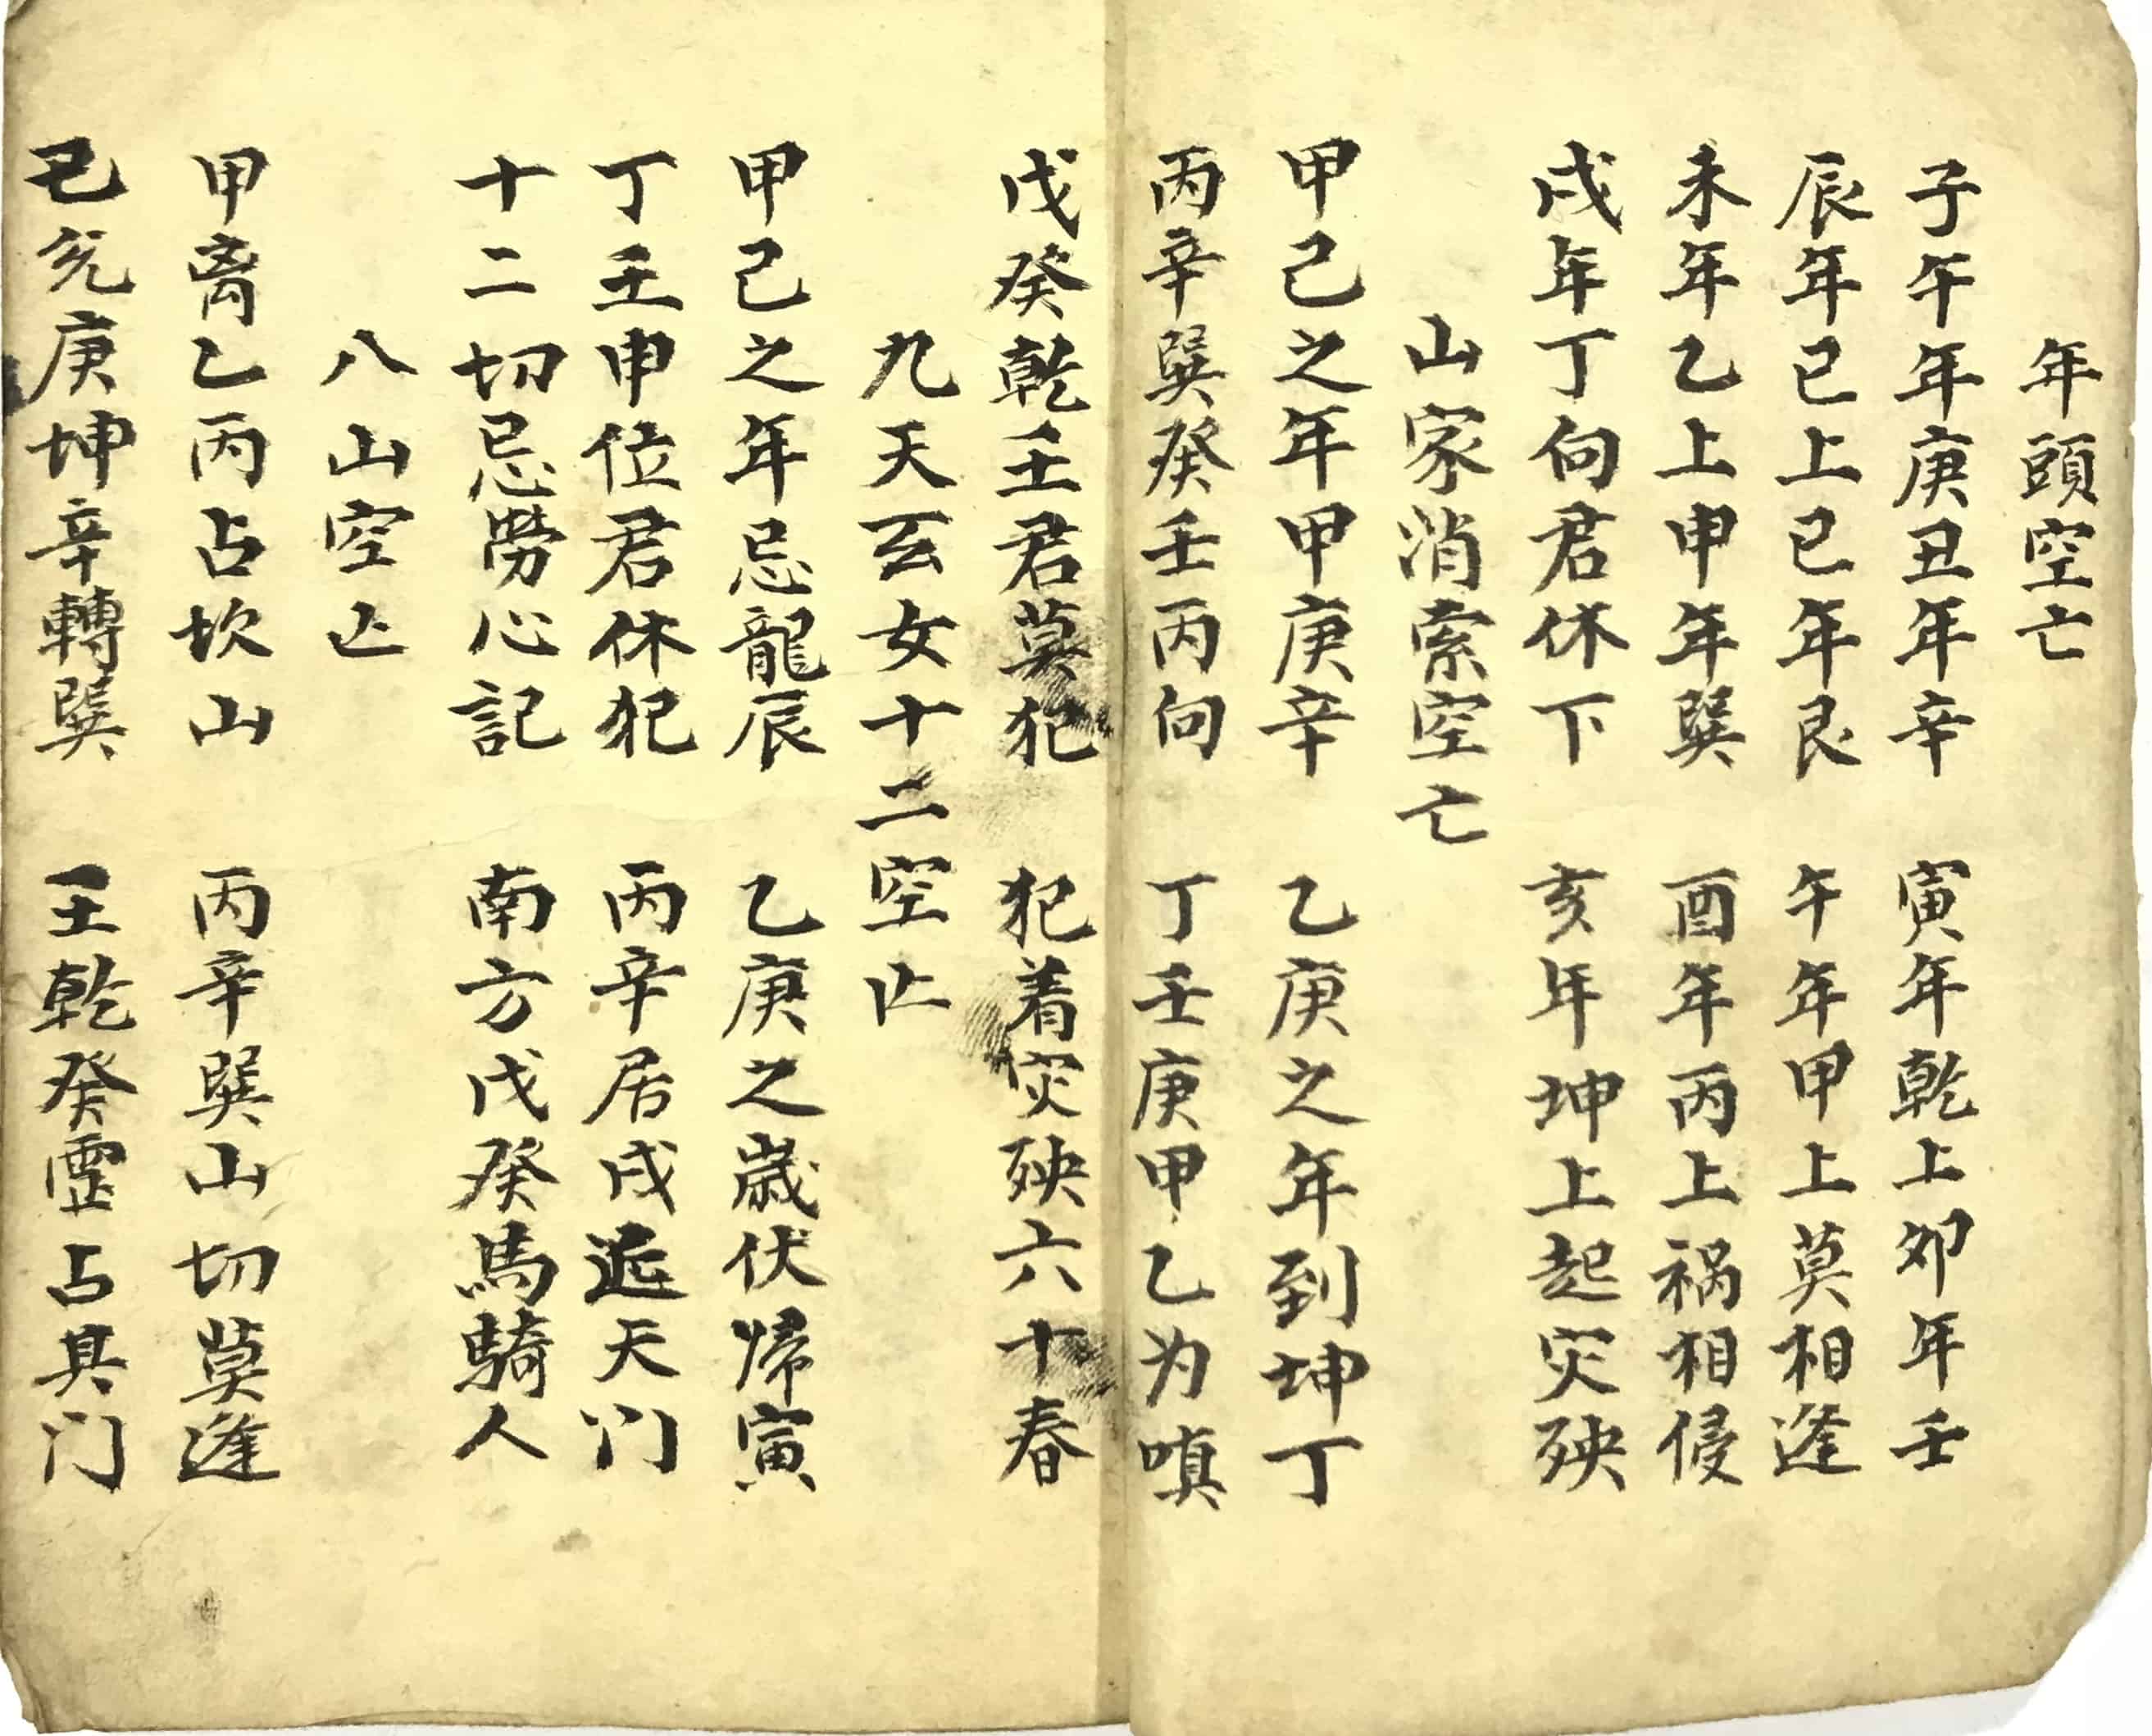 年頭空亡
子午年庚丑年辛　寅年乾上夘年壬
辰年已上巳年艮　午年甲上莫相逢
未年乙上申年巽　酉年丙上祸相侵
戌年丁向君休下　亥年坤上起灾殃
山家消索空亡
甲己之年甲庚辛　乙庚之年到坤丁
丙辛巽癸壬丙向　丁壬庚甲乙为嗔
戊癸乾壬君莫犯　犯着灾殃六十春
九天玄女十二空亡
甲己之年忌龍辰　乙庚之歲伏帰寅
丁壬申位君休犯　丙辛居戌
天门
十二切忌劳心記　南方戊癸馬騎人
八山空亡
甲离乙丙占坎山　丙辛巽山切莫逢
己兊庚坤辛轉巽　壬乾癸
占其门